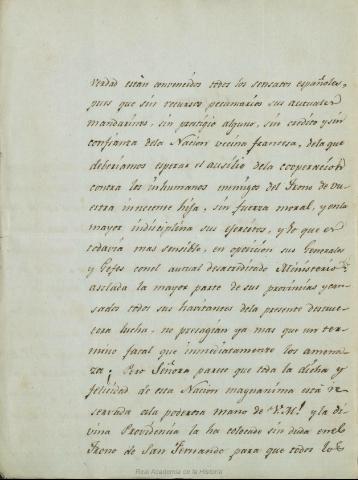 verdad estàn convencidos todos los sensatos españoles,
pues que sin recursos pecuniarios sus actuales
mandarines, sin prestigio alguno, sin crédito y sin
confianza dela Nacion vecina francesa, dela que
deberiamos esperar el ausilio dela cooperacion
contra los inhumanos enemigos del Trono de vu-
estra innocente hija, sin fuerza moral, y en la
mayor indisciplina sus ejércitos, y lo que es
todavia mas sensible, en oposicion sus Generales
y Gefes con el actual desacreditado Ministerio;
asolada la mayor parte de sus provinias y can-
sados todos sus havitantes dela presente
lucha, no presagian ya mas que un ter-
mino fatal que inmediatamente los amena-
za; Pero Señora, parece que toda la dicha y
felicidad de esta Nacion magnanima está re-
servada ala poderosa mano de V.M. y la di-
vina Providencia la ha colocado sin duda en el
Trono de San Fernando para que todos los
Real Academia de la Historia